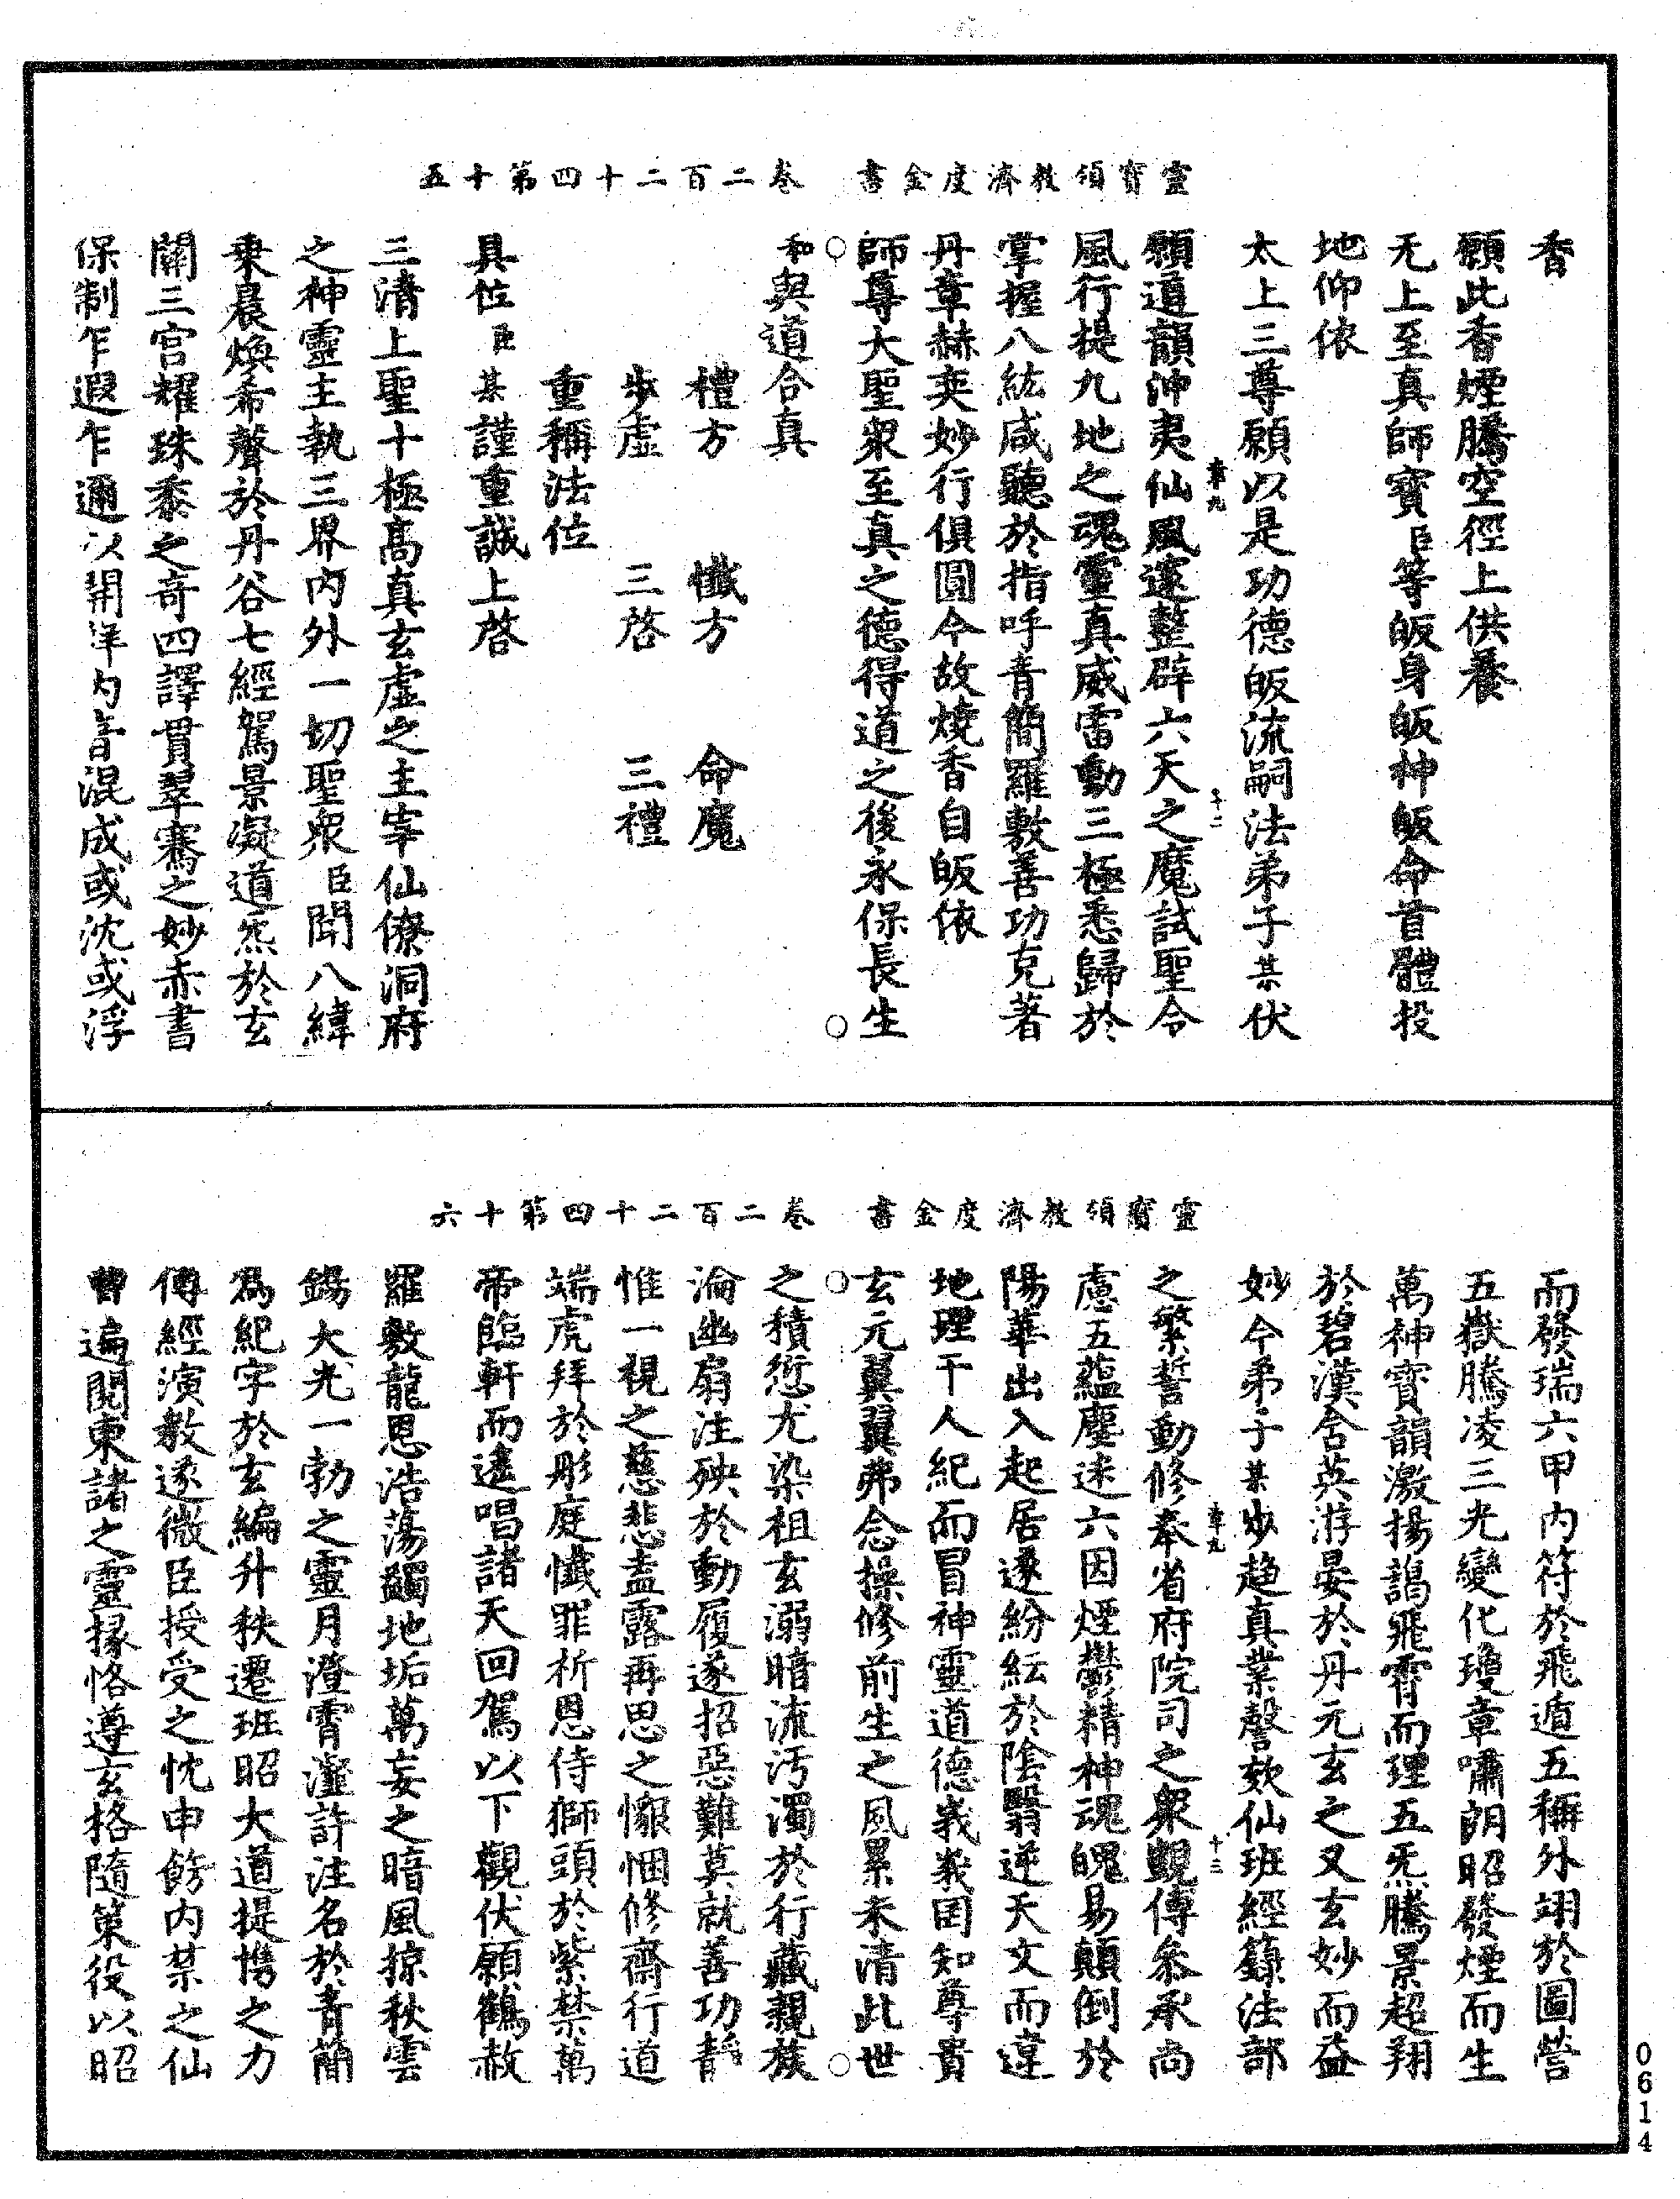 靈寶領教濟度金書　卷二百二十四第十五
香
願此香煙騰空徑上供養
无上至真師寶臣等皈身皈神皈命首體投
地仰依
太上三尊願以是功德皈流嗣法弟子某伏
章九
十二
願道韻沖夷仙風遼整辟六天之魔試聖令
風行提九地之魂靈真威雷動三極悉歸於
掌握八紘咸聽於指呼青簡羅敷善功克著
丹章赫奕妙行俱圓今故燒香自皈依
師尊大聖眾至真之德得道之後永保長生
和與道合真
禮方　懺方　命魔
步虛　三啓　三禮
重稱法位
具位臣某謹重誠上啓
三清上聖十極高真玄虛之主宰仙僚洞府
之神靈主執三界內外一切聖眾臣聞八緯
乗晨煥希聲於丹谷七經駕景凝道炁於玄
關三宮耀珠黍之奇四譯貫翠騫之妙赤書
保制乍遐乍邇以開洋內音混成或沈或浮
靈寶領教濟度金書　卷二百二十四第十六
而發瑞六甲內符於飛遁五稱外翊於圖營
五嶽騰凌三光變化瓊章嘯朗昭發煙而生
萬神寶韻激揚謁飛霄而理五炁騰景超翔
於碧漢含英游晏於丹元玄之又玄妙而益
妙今弟子某步趋真業謦欬仙班經籙法部
章九
十三
之繁誓動修奉省府院司之眾覬傳叅承尚
慮五蘊塵迷六因煙鬱精神魂魄易顛倒於
陽華出入起居遂紛紜於陰翳逆天文而違
地理干人紀而冒神靈道德峩峩罔知尊貴
玄元翼翼弗念操修前生之風累未清此世
之積愆尤染祖玄溺暗流污濁於行藏親族
淪幽扃注殃於動履遂招惡難莫就善功靜
惟一視之慈悲盍露再思之懺悃修齋行道
端虎拜於彤庭懺罪祈恩侍獅頭於紫禁萬
帝臨軒而遠唱諸天回駕以下觀伏願鶴赦
羅敷龍恩浩蕩蠲地垢萬妄之暗風掠秋雲
錫大光一勃之靈月澄霄瀣許注名於青簡
為紀字於玄編升秩遷班昭大道提携之力
傳經演教遂微臣授受之忱申飭內禁之仙
曹遍閱東諸之靈掾恪遵玄格隨策役以昭
0614